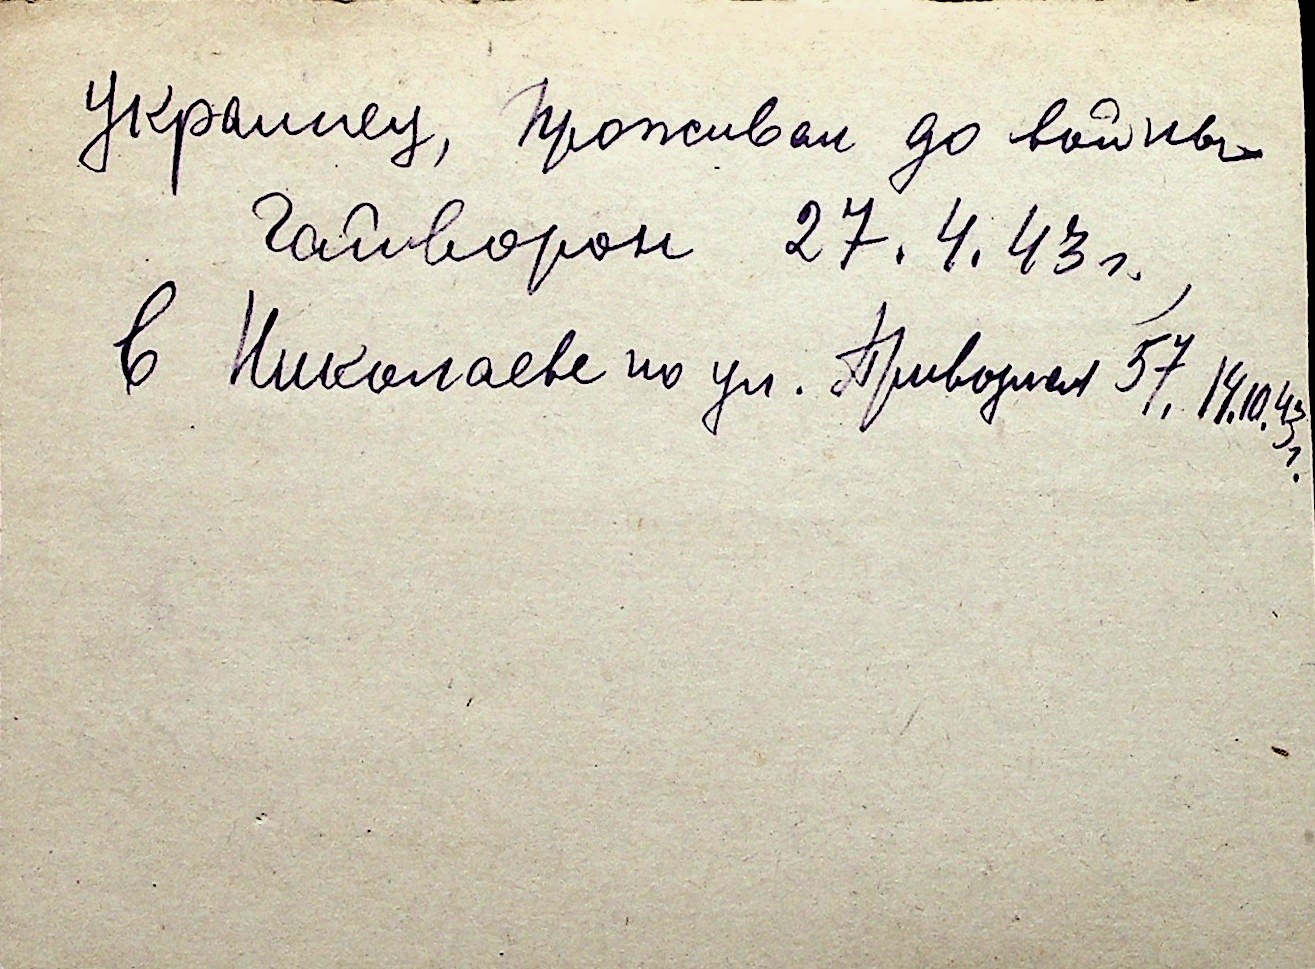 Украинец, проживал до войны
Гайворон 27.4.43 г.,
в Николаеве по ул. Приводная 57, 14.10.43 г.